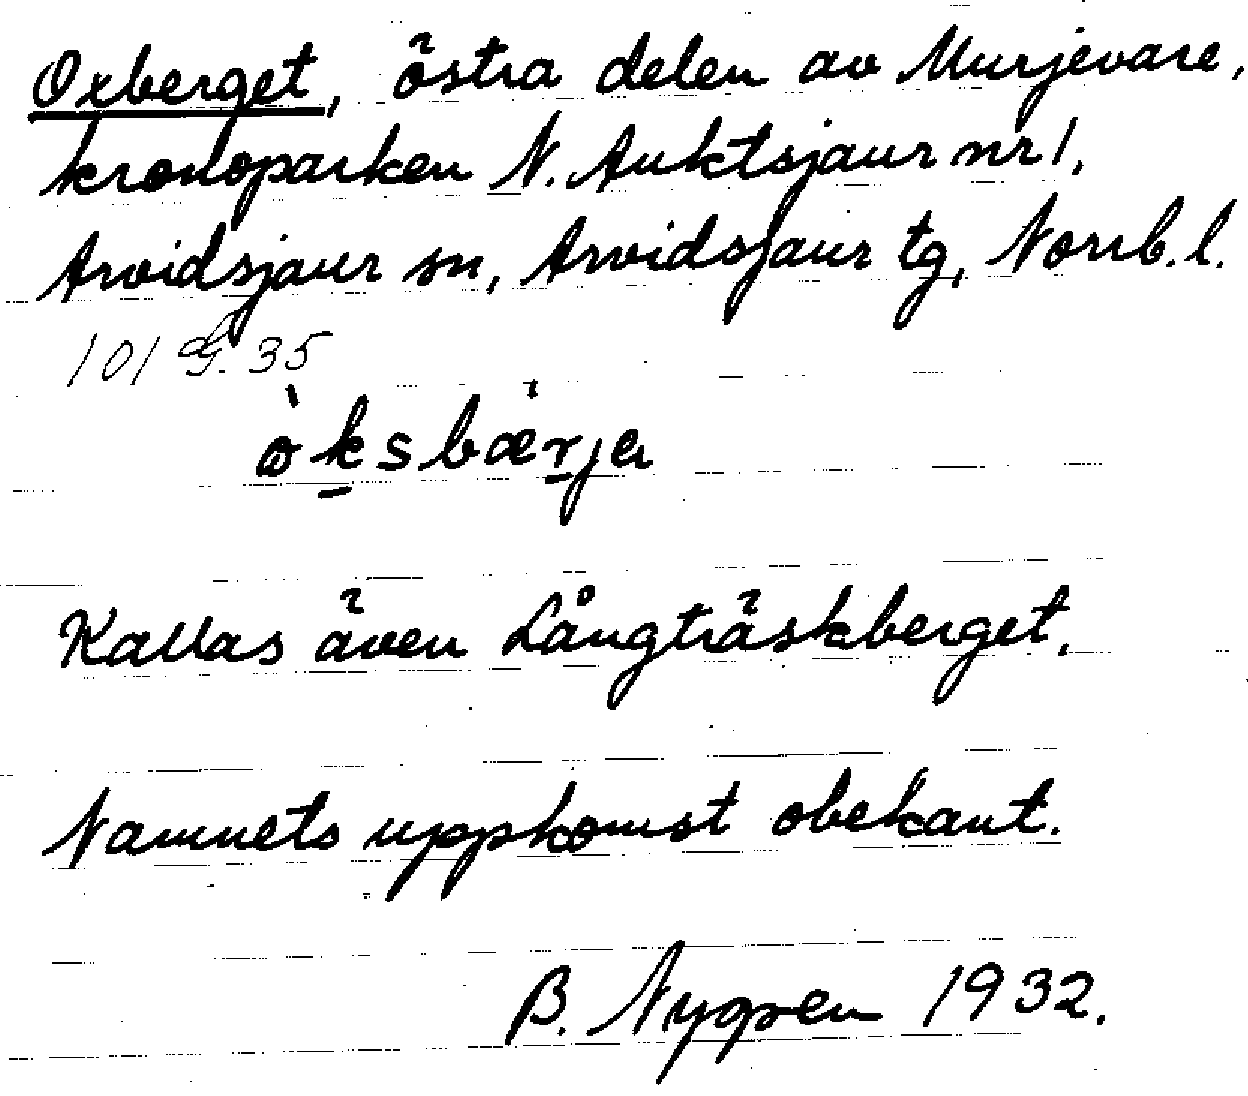 Oxberget, östra delen av Murjevare,
kronoparken N. Auktsjaur nr 1,
Arvidsjaur sn, Arvidsjaur tg, Norrb. l.
101 35
òksbærja
Kallas även Långträskberget.
Namnets uppkomst obekant.
B. Nygren 1932.